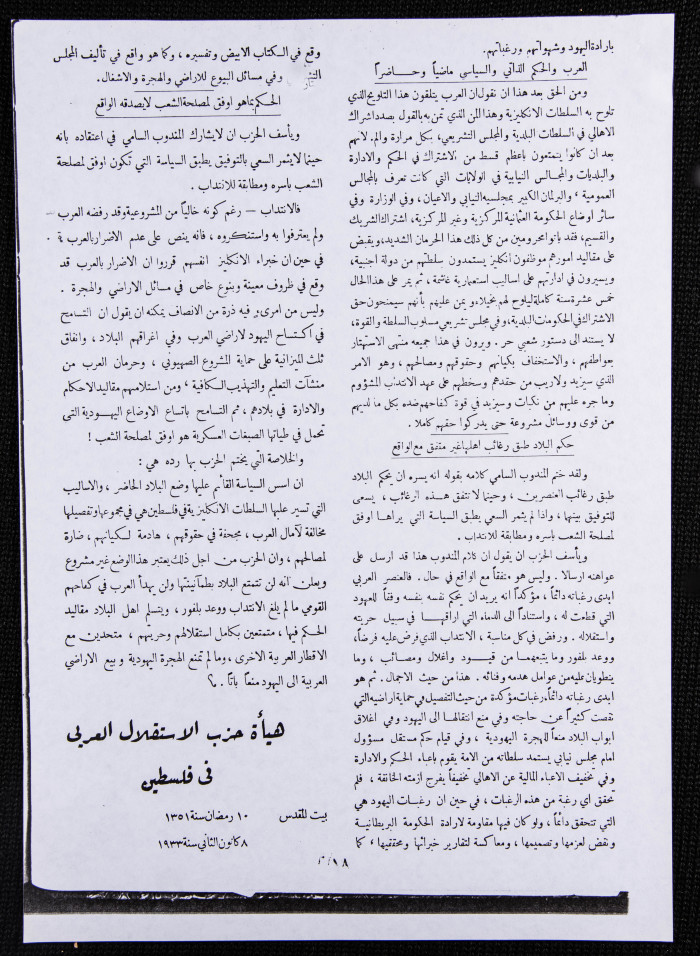 بارادة اليهود وشهواتهم ورغباتهم.
العرب والحكم الذاتي والسياسي ماضياً وحاضراً
ومن الحق بعد هذا ان نقول ان العرب يتلقون هذا التلويح الذي
تلوح به السلطات الانكليزية وهذا المن الذي تمن به بالقول بصدد اشراك
الاهالي في السلطات البلدية والمجلس التشريعي، بكل مرارة والم. لانهم
بعد ان كانوا يتمتعون باعظم قسط من الاشتراك في الحكم والادارة
والبلديات والمجالس النيابية في الولايات التي كانت تعرف بالمجالس
العمومية ، والبرلمان الكبير بمجلسيه النيابي والاعيان ، وفي الوزارة وفي
سائر اوضاع الحكومة العثمانية المركزية وغير المركزية، اشتراك الشريك
والقسيم، فقد باتوا محرومين من كل ذلك هذا الحرمان الشديد، ويقبض
على مقاليد امورهم موظفون انكليز يستمدون سلطتهم من دولة اجنبية،
ويسيرون في ادارتهم على اساليب استعمارية غاشمة ، ثم يمر على هذا الحال
خمس عشرة سنة كاملة ليلوح لهم بخيلاء ويمن عليهم بأنهم سيمنحون حق
الاشتراك في الحكومات البلدية، وفي مجلس تشريعي مسلوب السلطة والقوة،
لا يستند الى دستور شعبي حر . ويرون في هذا جميعه منتهى الاستهتار
بعواطفهم ، والاستخفاف بكيانهم وحقوقهم ومصالحهم ، وهو الامر
الذي سيزيد ولاريب من حقدهم وسخطهم على عهد الانتداب المشؤوم
وما جره عليهم من نكبات وسيزيد في قوة كفاحهم ضده بكل ما لديهم
من قوى ووسائل مشروعة حتى يدركوا حقهم كاملا .
حكم البلاد طبق رغائب اهلها غير متفق مع الواقع
ولقد ختم المندوب السامي كلامه بقوله انه يسره ان يحكم البلاد
طبق رغائب العنصرين ، وحينما لا تتفق هذه الرغائب ، يسعى
للتوفيق بينها ، واذا لم يثمر السعي يطبق السياسة التي يراها اوفق
لمصلحة الشعب باسره ومطابقة للانتداب .
ويأسف الحزب ان يقول ان كلام المندوب هذا قد ارسل على
عواهنه ارسالا . وليس هو متفقاً مع الواقع في حال . فالعنصر العربي
ابدى رغباته دائماً ، مؤكداً انه يريد ان يحكم نفسه بنفسه وفقاً للعهود
التي قطعت له ، واستناداً الى الدماء التي اراقها في سبيل حريته
واستقلاله . ورفض في كل مناسبة ، الانتداب الذي فرض عليه فرضاً،
ووعد بلفور وما يتبعهما من قيود واغلال ومصائب ، وما
ينطويان عليه من عوامل هدمه وفنائه . هذا من حيث الاجمال . ثم هو
ابدى رغباته دائماً ، رغبات مؤكدة من حيث التفصيل في حماية اراضيه التي
نقصت كثيراً عن حاجته وفي منع انتقالها الى اليهود وفي اغلاق
ابواب البلاد منعاً للهجرة اليهودية ، وفي قيام حكم مستقل مسؤول
امام مجلس نيابي يستمد سلطاته من الامة يقوم باعباء الحكم والادارة
وفي تخفيف الاعباء المالية عن الاهالي تخفيفاً يفرج ازمته الخانقة ، فلم
تحقق اي رغبة من هذه الرغبات ، في حين ان رغبات اليهود هي
التي تتحقق دائماً ، ولو كان فيها مقاومة لارادة الحكومة البريطانية
ونقض لعزمها وتصميمها ، ومعاكسة لتقارير خبرائها ومحققيها ، كما
وقع في الكتاب الابيض وتفسيره ، وكما هو واقع في تأليف المجلس
وفي مسائل البيوع للاراضي والهجرة والاشغال.
الحكم بما هو اوفق لمصلحة الشعب لا يصدقه الواقع
ويأسف الحزب ان لا يشارك المندوب السامي في اعتقاده بانه
حينما لا يثمر السعي بالتوفيق يطبق السياسة التي تكون اوفق لمصلحة
الشعب باسره ومطابقة للانتداب .
فالانتداب – رغم كونه خالياً من المشروعية وقد رفضه العرب
ولم يعترفوا به واستنكروه ، فانه ينص على عدم الاضرار بالعرب
في حين ان خبراء الانكليز انفسهم قرروا ان الاضرار بالعرب قد
وقع في ظروف معينة وبنوع خاص في مسائل الاراضي والهجرة .
وليس من امرىء فيه ذرة من الانصاف يمكنه ان يقول ان التسامح
في اكتساح اليهود لاراضي العرب وفي اغراقهم البلاد ، وانفاق
ثلث الميزانية على حماية المشروع الصهيوني ، وحرمان العرب من
منشآت التعليم والتهذيب الكافية ، ومن استلامهم مقاليد الاحكام
والادارة في بلادهم ، ثم التسامح باتساع الاوضاع اليهودية التي
تحمل في طياتها الصبغات العسكرية هو اوفق لمصلحة الشعب !
والخلاصة التي يختم الحزب بها رده هي :
ان اسس السياسة القائم عليها وضع البلاد الحاضر ، والاساليب
التي تسير عليها السلطات الانكليزية في فلسطين هي في مجموعها وتفصيلها
مخالفة لآمال العرب ، مجحفة في حقوقهم ، هادمة لكيانهم ، ضارة
لمصالحهم ، وان الحزب من اجل ذلك يعتبر هذا الوضع غير مشروع
ويعلن انه لن تتمتع البلاد بطمأنينتها ولن يهدأ العرب في كفاحهم
القومي ما لم يلغ الانتداب ووعد بلفور ، ويتسلم اهل البلاد مقاليد
الحكم فيها ، متمتعين بكامل استقلالهم وحريتهم ، متحدين مع
الاقطار العربية الاخرى ، وما لم تمنع الهجرة اليهودية وبيع الاراضي
العربية الى اليهود منعاً باتاً .
هيأة حزب الاستقلال العربي
في فلسطين
بيت المقدس ١٠ رمضان سنة ١٣٥١
٨ كانون الثاني سنة ١٩٣٣